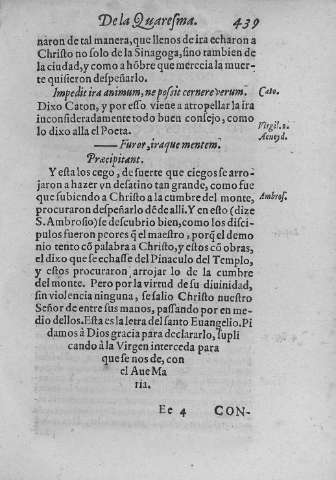 De la Quaresma. 439
naron de tal manera, que llenos de ira echaron a
Christo no solo de la Sinagoga, sino tambien de
la ciudad, y como a hõbre que merecia la muer-
te quisieron despeñarlo.
Impedit ira animum, ne possit cernere verum. Cato.
Dixo Caton, y por esso viene a atropellar la ira
inconsideradamente todo buen consejo, como
lo dixo alla el Poeta. Virgil. 2.
Aeneyd.
—— Furor, iraque mentem.
Præcipitant.
Y esta los cego, de suerte que ciegos se arro-
jaron a hazer vn desatino tan grande, como fue
que subiendo a Christo a la cumbre del monte, Ambros.
procuraron despeñarlo dẽde alli. Y en esto (dize
S. Ambrosio) se descubrio bien, como los disci-
pulos fueron peores q̃ el maestro, porq̃ el demo
nio tento cõ palabra a Christo, y estos cõ obras,
el dixo que se echasse del Pinaculo del Templo,
y estos procuraron arrojar lo de la cumbre
del monte. Pero por la virtud de su diuinidad,
sin violencia ninguna, se salio Christo nuestro
Señor de entre sus manos, passando por en me-
dio dellos. Esta es la letra del santo Euangelio. Pi
damos à Dios gracia para declararlo, supli
cando à la Virgen interceda para
que se nos de, con
el Aue Ma
ria.
Ee 4 CON-